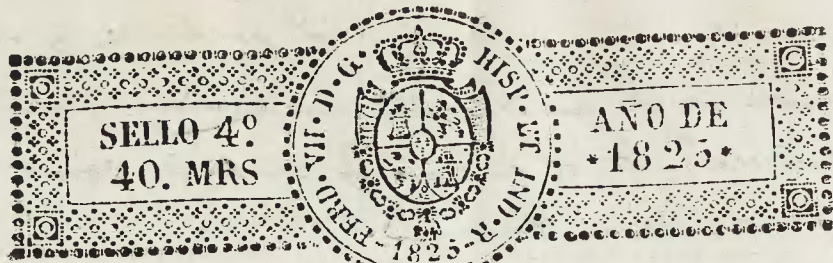 SELLO 4º
40. MRS
FERD·VII·D·G· HISP·ET IND·R
-1825-
AÑO DE
*1825*